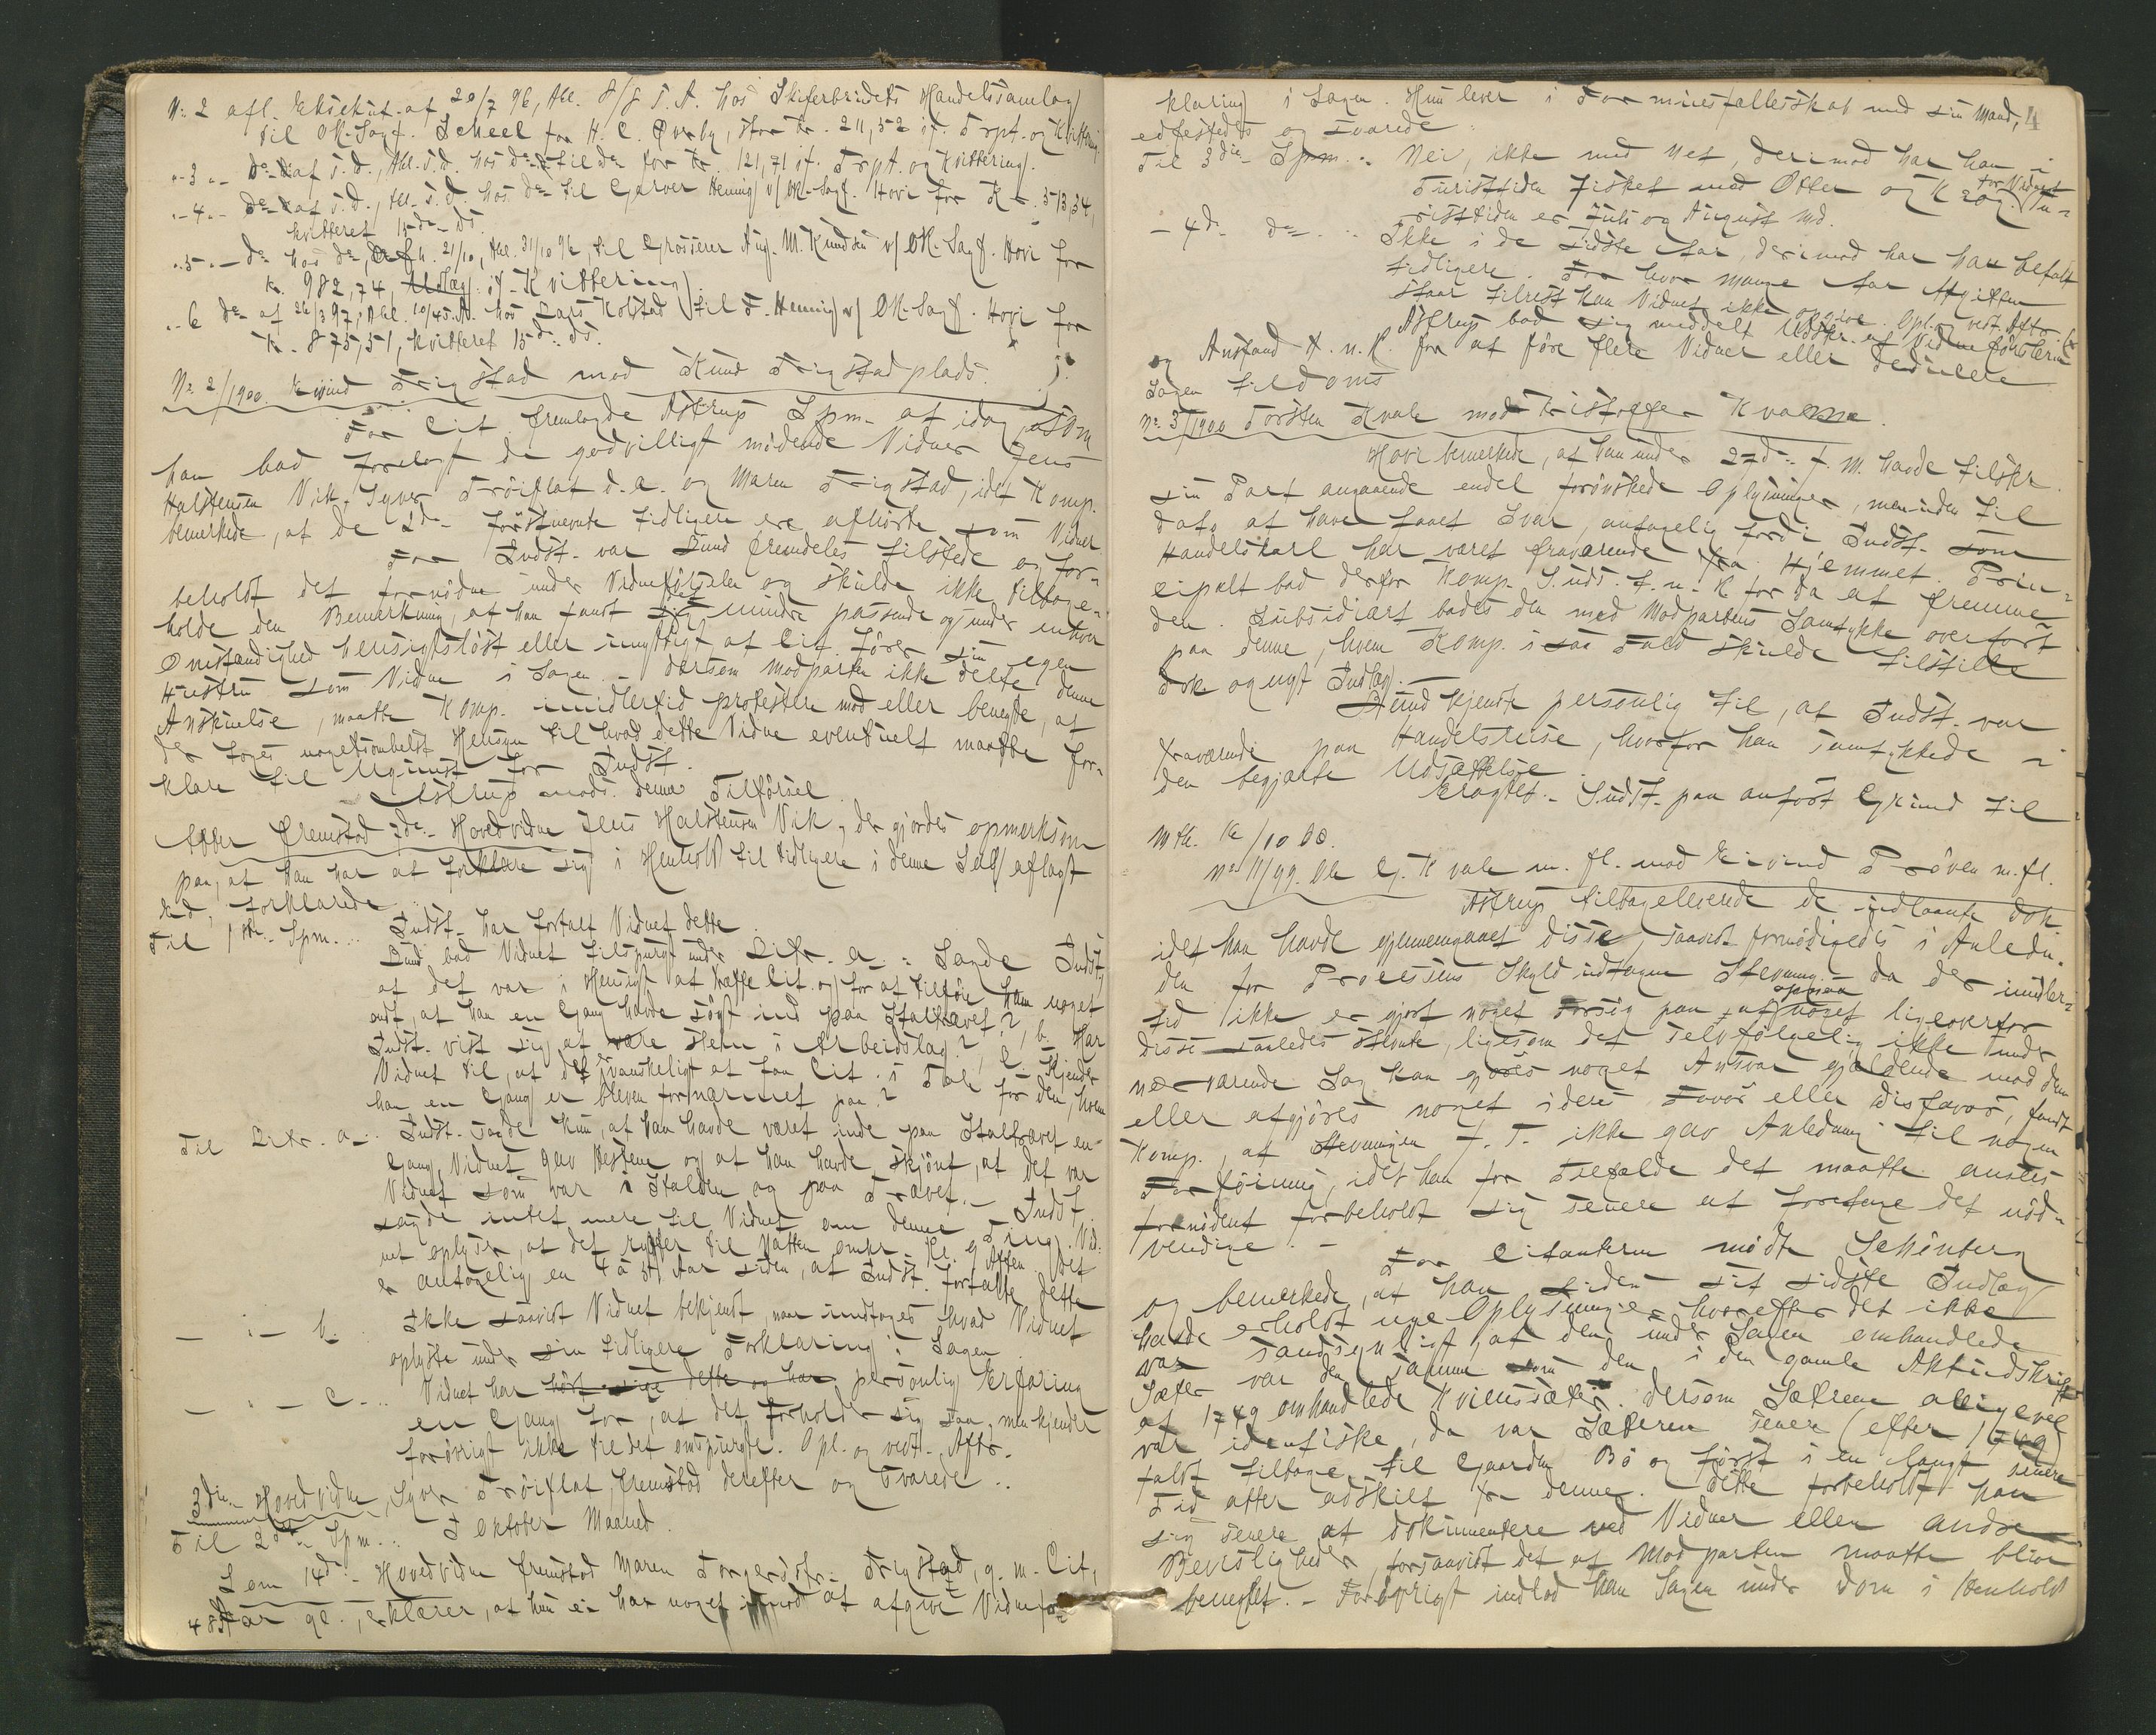 No: 2 afl. Eksekut. af 20/7 96, Akl. 8/8 s. A. hos Skiferbrudets Handelssamlag
til OR-Sagf. Scheel for H. C. Øverby, stor Kr. 211,52 if. Trpt. og Kvittering.
"- 3 "- Do- af s. d., Akl. s. d. hos do- til do- for Kr. 121,71 if. Trpt. og Kvittering.
"- 4 "- Do- af s. d., Akl. s. d. hos do- til Garver Hennig v/ OR-Sagf. Hovi for Kr. 513,34,
kvitteret 15de ds.
"- 5 "- do hos do, 21/10, Akl. 31/10 96, til Grosserer Aug. M. Knudsen v/ OR-Sagf. Hovi for
Kr. 982,74, if. Kvittering.
"- 6 do af 26/3 97, Akl. 10/4 s. A. hos Lars Kolstad til S. Hennig v/ OR-Sagf. Hovi for
Kr. 875,51, kvitteret 15de ds.
No: 2/1900. Knud Trigstad mod Knud Trigstadplads.
For Cit. fremlagde Astrup Spm. af idag, som
han bad forelagt de godvilligt mødende Vidner Jens
Halstensen Vik, Syver Trøiflat d. a. og Maren Trigstad, idet Komp.
bemerkede, at de 2de førstnevnte tidligere ere afhørte som Vidner.
For Indst. var Lund fremdeles tilstede og for-
beholdt det fornødne under Vidneførselen og skulde ikke tilbage-
holde den Bemerkning, at han fandt det mindre passende og under enhver
Omstændighed hensigtsløst eller unyttigt at Cit. fører sin egen
Hustru som Vidne i Sagen. Dersom Modparten ikke delte denne
Anskuelse, maatte Komp. imidlertid protestere mod eller benegte, at
der toges nogetsomhelst Hensyn til hvad dette Vidne eventuelt maatte for-
klare til Ugunst for Indst.
Astrup mods. denne Tilførsel.
Efter fremstod 2de Hovedvidne Jens Halstensen Vik, der gjordes opmerksom
paa, at han har at forklare sig i Henhold til tidligere i denne Sag aflagt
Ed, forklarede:
Til 1ste Spm. .. Indst. har fortalt Vidnet dette.
Lund bad Vidnet tilspurgt under Litr. a.: Sagde Indst.
at det var i Hensigt at træffe Cit. og for at tilføie ham noget
ondt, at han en Gang havde søgt ind paa Staltrævet?, b. Har
Indst. vist sig at være slem i Arbeidslag?, c. Kjender
Vidnet til, at det er vanskeligt at faa Cit. i Tale for den, hvem
han en Gang er bleven fornærmet paa?
Til Litr. a. .. Indst. sagde kun, at han havde været inde paa Staltrævet en
Gang, Vidnet gav Hestene og at han havde skjønt, at det var
Vidnet som var i Stalden og paa Trævet. – Indst.
sagde intet mere til Vidnet om denne Ting. Vid-
net oplyser, at det rytter til Natten omkr. Kl. 9 Aften. Det
er antagelig en 4 á 5 Aar siden, at Indst. fortalte dette.
– " – b. .. Ikke saavidt Vidnet bekjendt, naar undtages hvad Vidnet
oplyste under sin tidligere Forklaring i Sagen.
– " – c. .. Vidnet har hørt sige dette og har personlig Erfaring
en Gang for, at det forholder sig saa, men kjender
forøvrigt ikke til det omspurgte. Opl. og vedt. Aftr.
3die Hovedvidne, Syver Trøiflat, fremstod derefter og svarede ..
Til 2det Spm. .. I Oktober Maaned.
Som 14de Hovedvidne fremstod Maren Torgersdtr. Trigstad, g. m. Cit.,
48 Aar gl., erklærer, at hun ei har noget imod at afgive Vidnefor-
4
klaring i Sagen. Hun lever i Formuesfællesskab med sin Mand,
edfestedes og svarede:
Til 3die Spm. .. Nei, ikke med Net, derimod har han i
Turisttiden fisket med Otter og Krog. Tu-
for Vidnet
risttiden er Juli og August Md.
– 4de do- .. Ikke i de sidste Aar, derimod har han befalt
tidligere. For hvor mange Aar Afgiften
staar tilrest kan Vidnet ikke opgive. Opl. og vedt. Aftr.
Astrup bad sig meddelt Udskr. af Vidneførslerne
og Anstand t. n. R. for at føre flere Vidner eller deducere
Sagen tildoms.
No. 3/1900 Torsten Kvale mod Kristoffer Kvarme.
Hovi bemerkede, at han under 27de f. M. havde tilskr.
sin Part angaaende endel forønskede Oplysninger, men inden til
dato at have faaet Svar, antagelig fordi Indst. som
Handelskarl har været fraværende fra Hjemmet. Prin-
cipalt bad derfor Komp. S. uds. t. n. R. for da at fremme
den. Subsidiært bades den med Modpartens Samtykke overført
paa denne, hvem Komp. i saa Fald skulde tilstille
Dok. og nyt Indlæg. –
Lund kjendte personlig til, at Indst. var
fraværende paa Handelsreise, hvorfor han samtykkede i
den begjærte Udsættelse.
Eragtet. – S. udst. paa anført Grund til
Mtk. 16/10 00.
No. 11/99. Ole G. Kvale m. fl. mod Eivind Prøven m. fl.
Astrup tilbageleverede de indlaante Dok.
idet han havde gjennemgaaet disse, saavidt fornødigedes i Anledn.
den for Processens Skyld indtagne Stevning. Da der imidler-
tid ikke er gjort noget Forsøg paa at opnaa noget ligeoverfor
disse saaledes stevnte, ligesom det selvfølgelig ikke under
nærværende Sag kan gjøres noget Ansvar gjældende mod dem
eller afgjøres noget i deres Favør eller Disfavør, fandt
Komp., at Stevningen f. T. ikke gav Anledning til nogen
Forføining, idet han for Tilfælde det maatte ansees
fornødent forbeholdt sig senere at foretage det nød-
vendige. –
For Citanterne mødte Schönberg
og bemerkede, at han siden sit sidste Indlæg
havde erholdt nye Oplysninger hvorefter det ikke
var sandsynligt, at den under Sagen omhandlede
Sæter var den samme som den i den gamle Aktudskrift
af 1749 omhandlede Kvilessæter. Dersom Sætrene alligevel
var identiske, da var Sæteren senere (efter 1749)
faldt tilbage til Gaarden Bø og først i en langt senere
Tid atter adskilt fra denne. Dette forbeholdt han
sig senere at dokumentere ved Vidner eller andre
Bevisligheder, forsaavidt det af Modparten maatte blive
benegtet. – Forøvrigt indlod han Sagen under Dom i Henhold